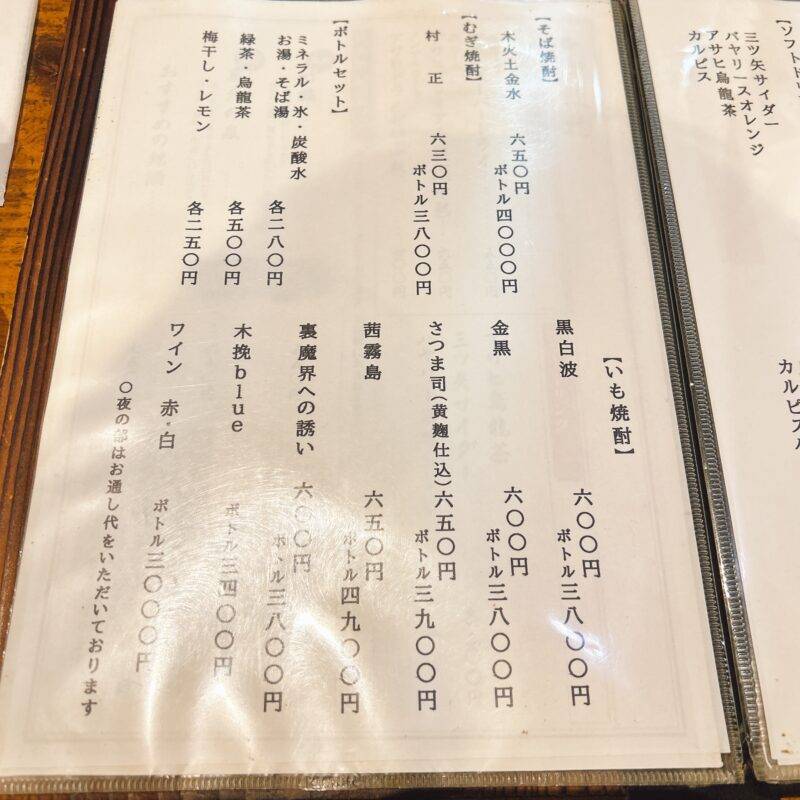 【ソフトドリ
三ツ矢サイダー
バヤリースオレンジ
アサヒ烏龍茶
カルピス
カルピスハ
【そば焼酎】
木火土金水
六五〇円
ボトル四〇〇〇円
【むぎ焼酎】
村正
六三〇円
ボトル三八〇〇円
【ボトルセット】
ミネラル・氷・炭酸水
お湯・そば湯
各二八〇円
緑茶・烏龍茶
各五〇〇円
梅干し・レモン
各二五〇円
【いも焼酎】
黒白波
六〇〇円
ボトル三八〇〇円
金黒
六〇〇円
ボトル三八〇〇円
さつま司(黄麹仕込)六五〇円
ボトル三九〇〇円
茜霧島
六五〇円
ボトル四九〇〇円
裏魔界への誘い
六〇〇円
ボトル三八〇〇円
木挽blue
ボトル三四〇〇円
ワイン 赤・白
ボトル三〇〇〇円
〇夜の部はお通し代をいただいております